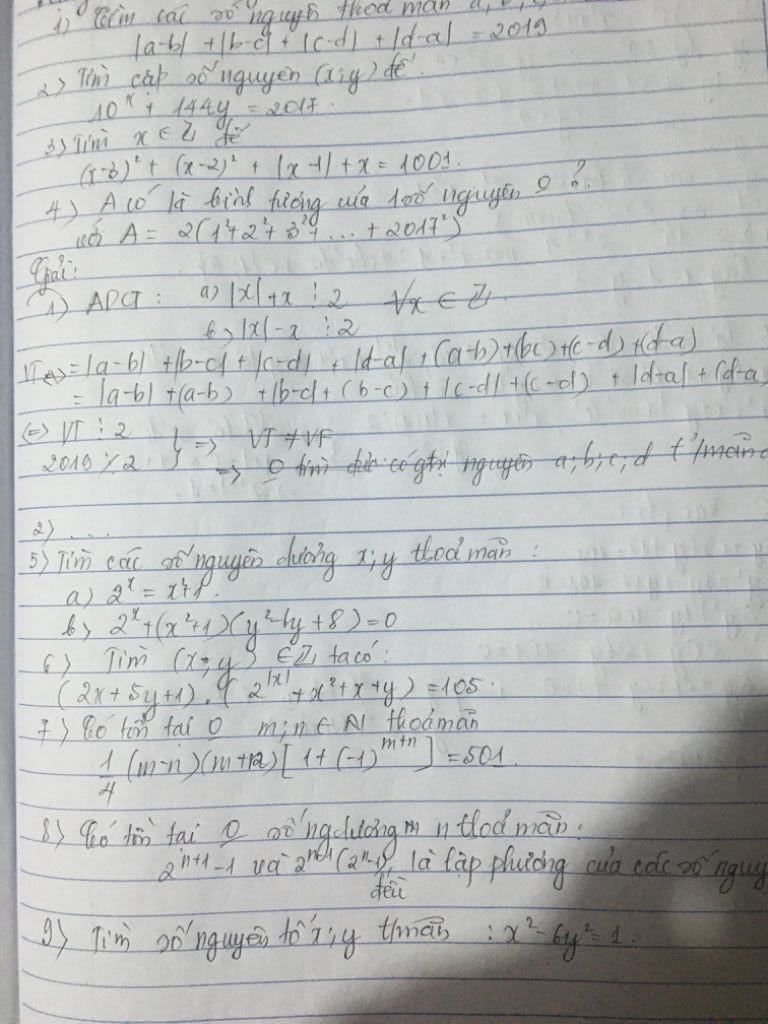 1) Tìm các số nguyên thoả mãn a, b,
|a-b| + |b-c| + |c-d| + |d-a| = 2019
2) Tìm cặp số nguyên (x;y) để
10^x + 144y = 2017
3) Tìm x ∈ Z để
(x-3)² + (x-2)² + |x-1| + x = 1001.
4) A có là bình phương của 1 số nguyên O?
với A = 2(1²+2²+3²+ ... + 2017²)
Giải:
1) ADCT: a) |x|+x ⋮ 2 ∀x ∈ Z
b) |x|-x ⋮ 2
VT <=> = |a-b| + |b-c| + |c-d| + |d-a| + (a-b)+(bc)+(c-d)+(d-a)
= |a-b| + (a-b) + |b-c| + (b-c) + |c-d| + (c-d) + |d-a| + (d-a)
(=) VT ⋮ 2 } => VT ≠ VF
2019 ⋮̸ 2 => O tìm được có gtrị nguyên a;b;c;d t/mãn
2) ...
5) Tìm các số nguyên dương x;y thoả mãn:
a) 2^x = x²+1.
b) 2^x + (x²+1)(y²-6y+8) = 0
6) Tìm (x;y) ∈ Z, ta có:
(2x + 5y+1).(2^|x| + x²+x+y) = 105.
7) Có tồn tại O m;n ∈ N thoả mãn
1/4 (m-n)(m+n)[1+(-1)^{m+n}] = 501.
8) Có tồn tại O số ng dương n thoả mãn:
2^{n+1}-1 và 2^{n-1}(2^n-1) là lập phương của các số nguy
đều
9) Tìm số nguyên tố x;y t/mãn : x²-6y²=1.